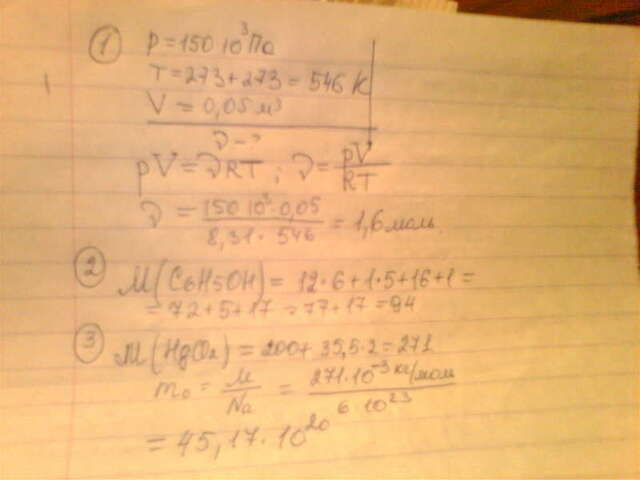 1
P = 150 10³ Па
T = 273 + 273 = 546 K
V = 0,05 м³
ν - ?
pV = νRT ; ν = pV / RT
ν = 150 10³ · 0,05 / 8,31 · 546 = 1,6 моль.
2
M(C6H5OH) = 12·6+1·5+16+1 =
= 72+5+17 = 77+17 = 94
3
M(HgCl2) = 200+35,5·2=271
m₀ = M / Na = 271·10⁻³ кг/моль / 6·10²³
= 45,17·10²⁰